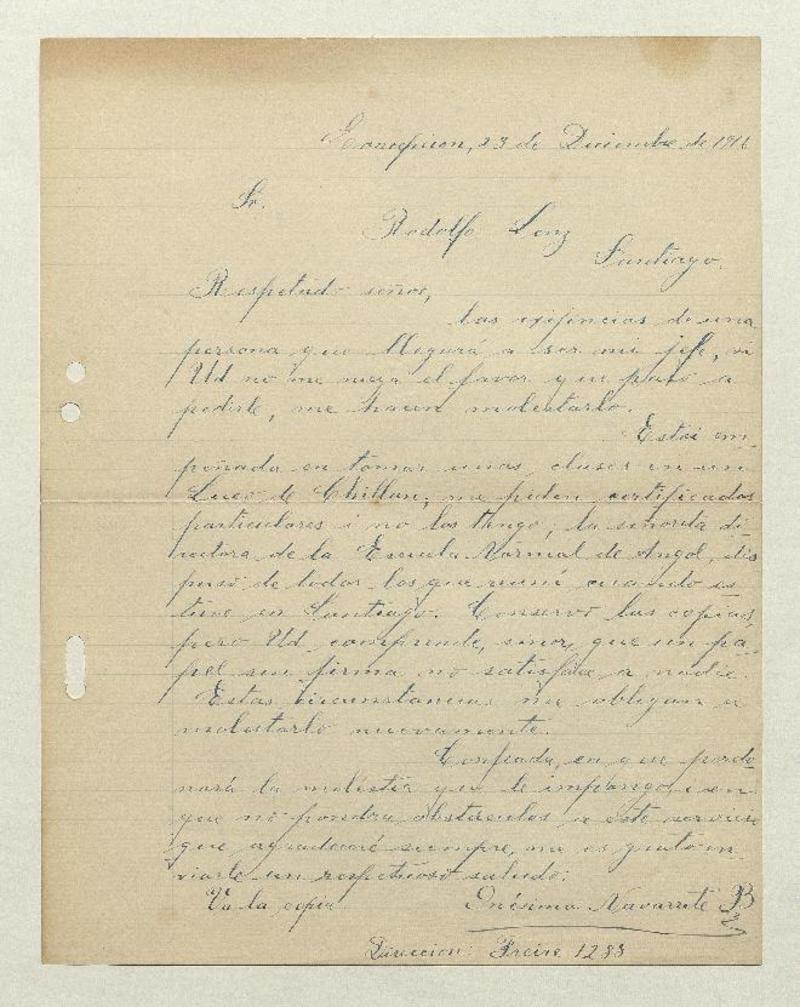 Concepcion, 23 de Diciembre de 1916
Sr.
Rodolfo Lenz
Santiago.
Respetado señor,
Las exijencias de una
persona que llegará a ser mi jefe, si
Ud no me niega el favor que paso a
pedirle, me hacen molestarlo.
Estoi em-
peñada en tomar unas clases en un
Liceo de Chillan; me piden certificados
particulares i no los tengo; la señorita di-
rectora de la Escuela Normal de Angol, dis
puso de todos los que reuní cuando es
tuve en Santiago. Conservo las copias,
pero Ud comprende, señor, que un pa-
pel sin firma no satisface a nadie.
Estas circunstancias me obligan a
molestarlo nuevamente.
Confiada, en que perdo-
nará la molestia que le impongo, i en
que no pondrá obstáculos a este servicio
que agradeceré siempre, me es grato en-
viarle un respetuoso saludo:
Va la copia Onésima Navarrete B
Direccion: Freire 1288